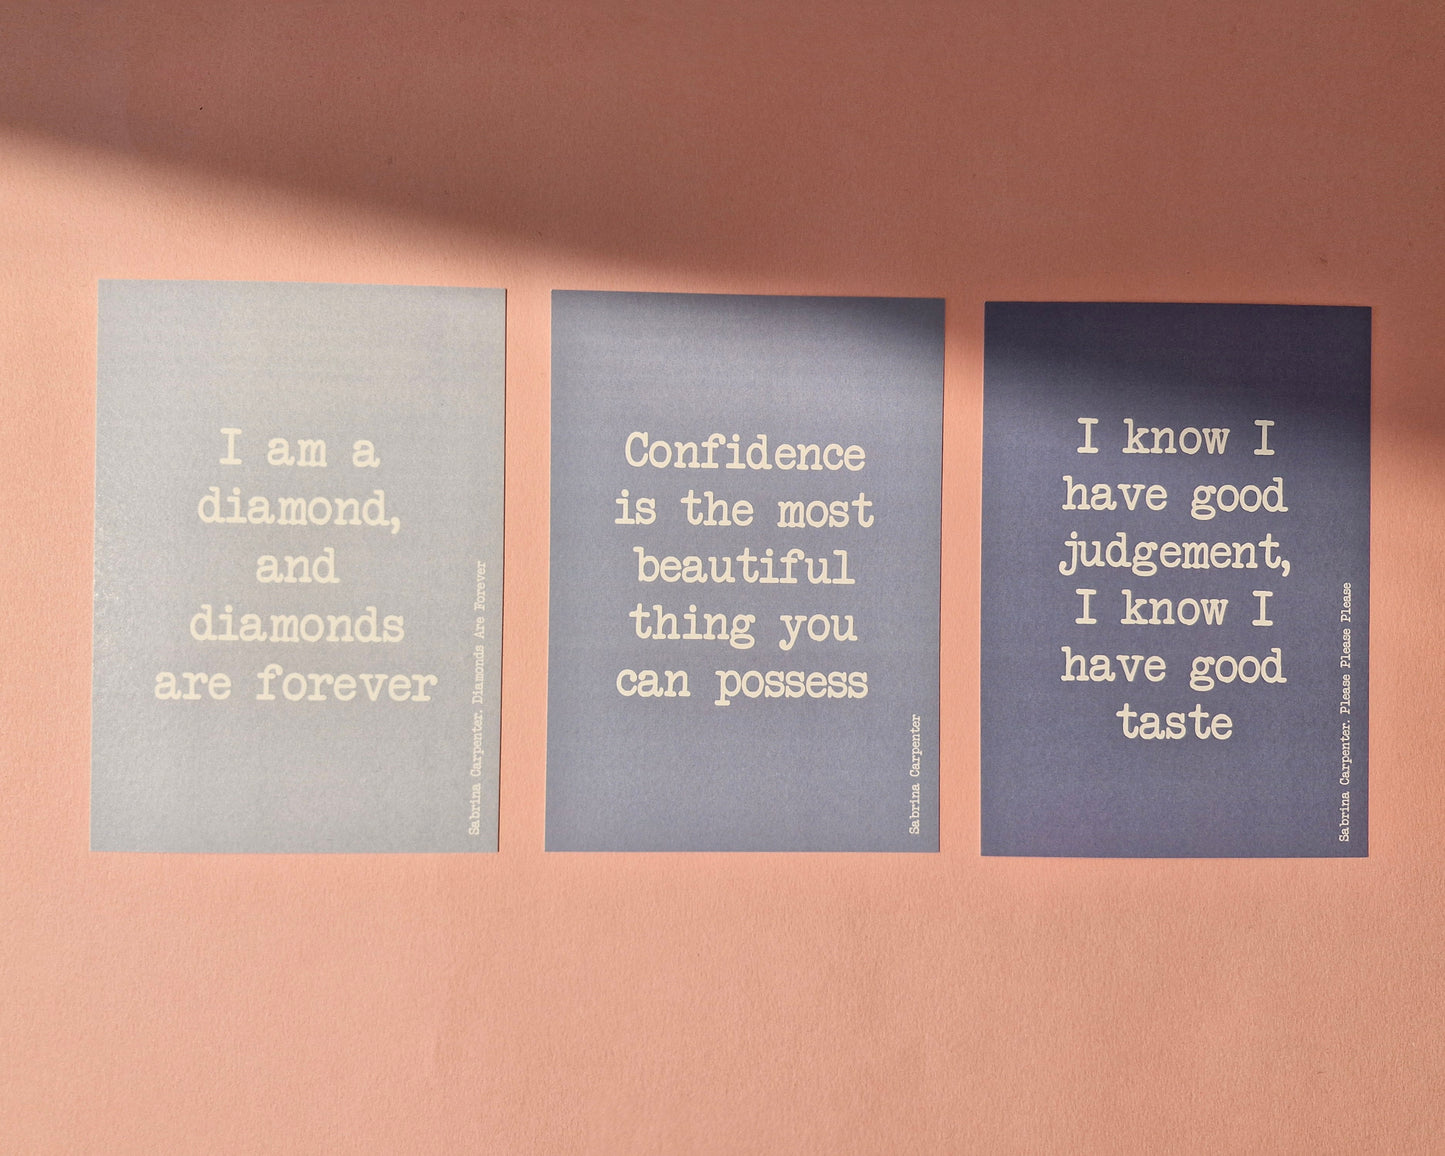 I am a
diamond,
and
diamonds
are forever
Sabrina Carpenter. Diamonds Are Forever
Confidence
is the most
beautiful
thing you
can possess
Sabrina Carpenter
I know I
have good
judgement,
I know I
have good
taste
Sabrina Carpenter. Please Please Please